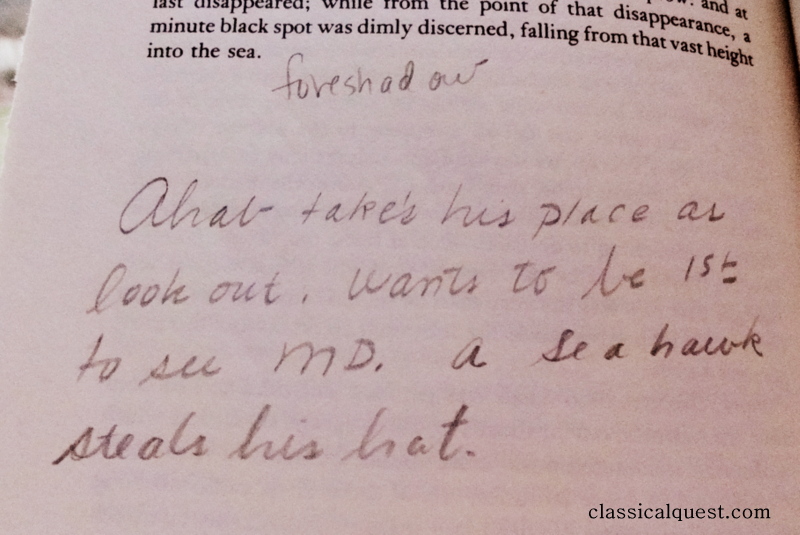 last disappeared; while from the point of that disappearance, a
minute black spot was dimly discerned, falling from that vast height
into the sea.
foreshadow
Ahab takes his place as
look out. Wants to be 1st
to see MD. A sea hawk
steals his hat.
classicalquest.com